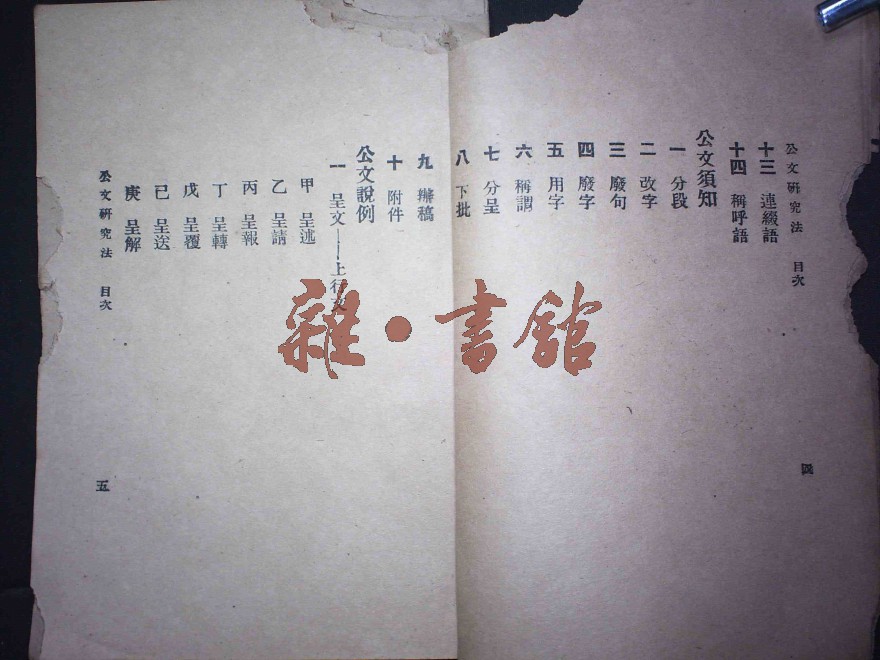 公文研究法　目次
十三　連綴語
十四　稱呼語
公文須知
一　分段
二　改字
三　廢句
四　廢字
五　用字
六　稱謂
七　分呈
八　下批
四
九　辦稿
十　附件
公文說例
一　呈文——上行文
甲　呈述
乙　呈請
丙　呈報
丁　呈轉
戊　呈覆
己　呈送
庚　呈解
公文研究法　目次
五
雜·書館